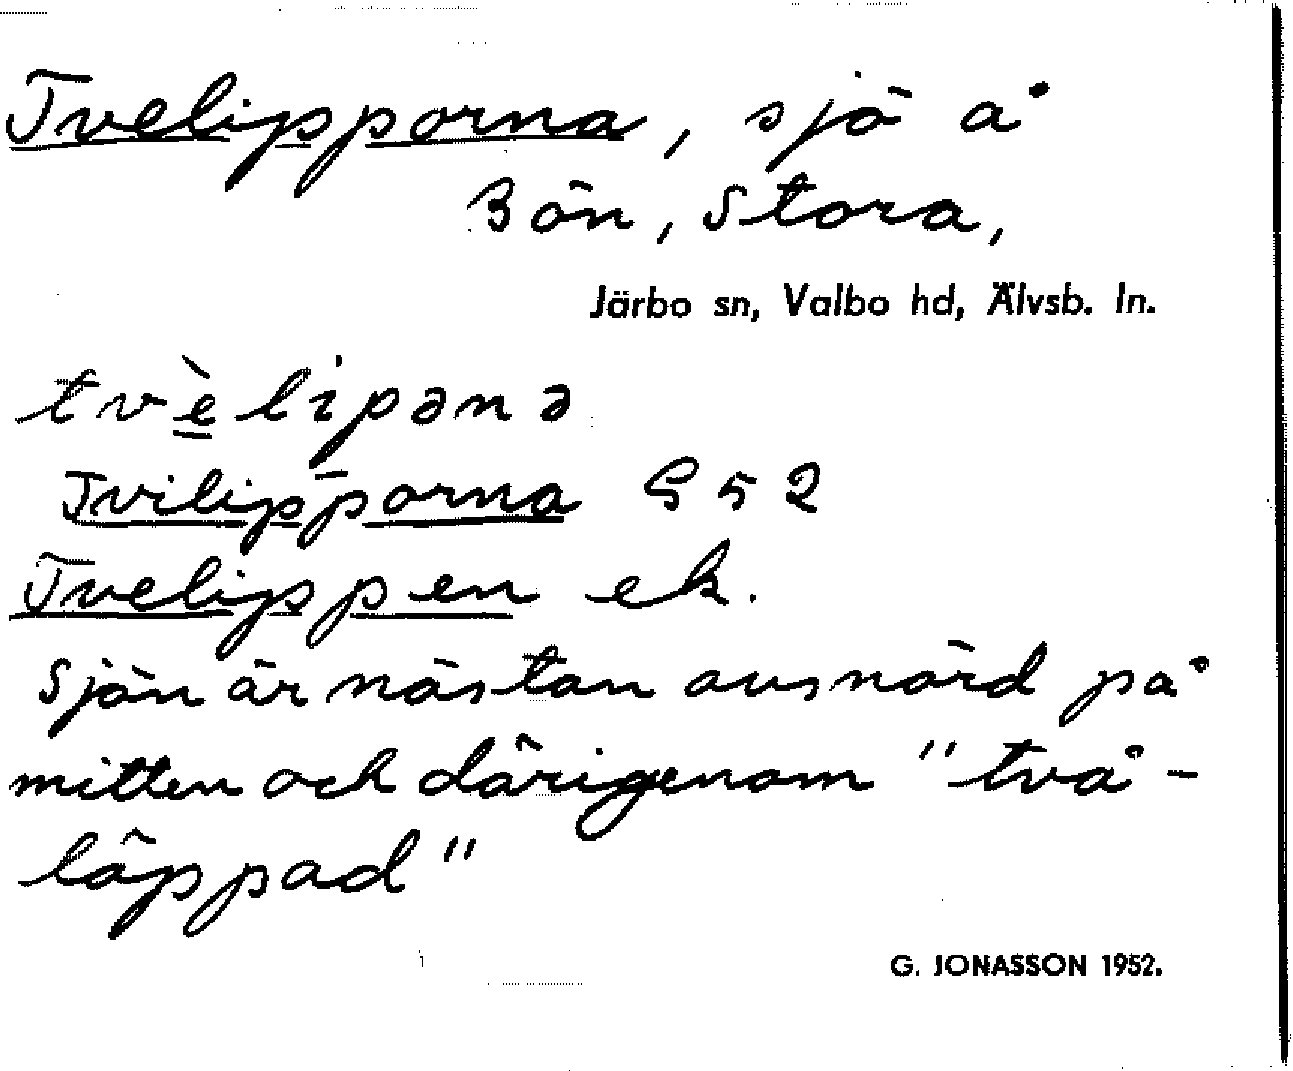 Tvelipporna, sjö å
Bön, Stora,
Järbo sn, Valbo hd, Älvsb. ln.
tvèlipənə
Tvilipporna G 52
Tvelippen ek.
Sjön är nästan avsnörd på
mitten och därigenom "två-
läppad"
G. JONASSON 1952.